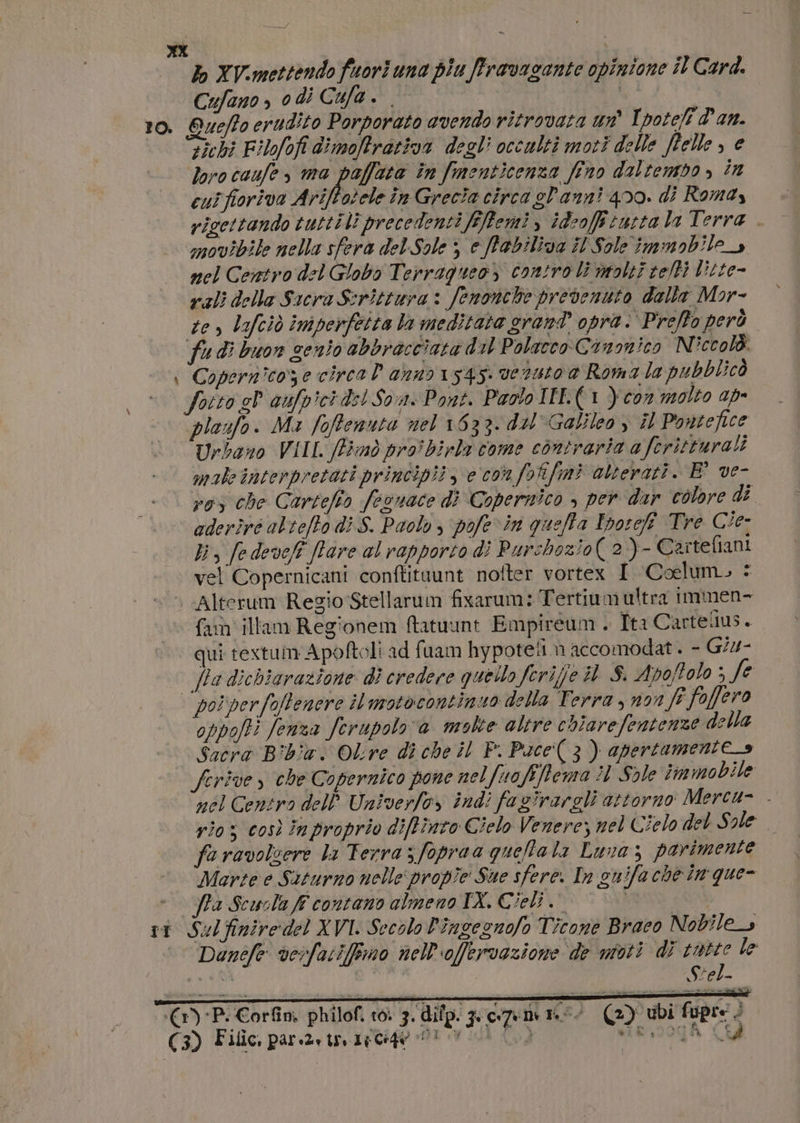 XX
lo XV. mettendo fuori una piu ſtravagante opinione il Card.
Cuſano, o di Cuſa.
10. Queſto erudito Porporato avendo ritrovata un' Ipoteſi d'an-
tichi Filoſofi dimoſtrativa degli occulti moti delle ſtelle, e
loro cauſe, ma paſſata in ſmenticenza ſino dal tempo, in
cui fioriva Ariſtotele in Grecia circa gl'anni 400. di Roma,
rigettando tutti li precedenti ſiſtemi, ideoſſi tutta la Terra
movibile nella sfera del Sole; e ſtabiliva il Sole immobile,
nel Centro del Globo Terraqueo, contro li molti teſti litte-
rali della Sacra Scrittura: ſenonche prevenuto dalla Mor-
te, laſciò imperfetta la meditata grand' opra. Preſto però
fu di buon genio abbracciata dal Polacco Canonico Niccolò
Copernico, e circa l' anno 1545. venuto a Roma la pubblicò
ſotto gl' auſpici del Som. Pont. Paolo III. (1) con molto ap-
plauſo. Ma ſoſtenuta nel 1633. dal Galileo, il Pontefice
Urbano VIII. ſtimò proibirla come contraria a ſcritturali
male interpretati principii, e con ſofiſmi alterati. E' ve-
ro, che Carteſio ſeguace di Copernico, per dar colore di
aderire al teſto di S. Paolo, poſe in queſta Ipoteſi Tre Cie-
li, ſe deveſi ſtare al rapporto di Purchozio (2) - Carteſiani
vel Copernicani conſtituunt noſter vortex I Cœlum, :
Alterum Regio Stellarum fixarum: Tertium ultra immen-
ſam illam Regionem ſtatuunt Empireum. Ita Carteſius.
qui textum Apoſtoli ad ſuam hypoteſin accomodat. - Giu-
ſta dichiarazione di credere quello ſcriſſe il S. Apoſtolo; ſe
poi per ſoſtenere il moto continuo della Terra, non ſi foſſero
oppoſti ſenza ſcrupolo a molte altre chiare ſentenze della
Sacra Bibia. Oltre di che il P. Pace (3) apertamente,
ſcrive, che Copernico pone nel ſuo ſiſtema il Sole immobile
nel Centro dell' Univerſo, indi fa girargli attorno Mercu-
rio; così in proprio diſtinto Cielo Venere; nel Cielo del Sole
fa ravolgere la Terra; ſopra a queſta la Luna; parimente
Marte e Saturno nelle propie Sue sfere. In guiſa che in que-
ſta Scuola ſi contano almeno IX. Cieli.
11 Sul finire del XVI. Secolo l'ingegnoſo Ticone Braeo Nobile,
Daneſe verſatiſſimo nell' oſſervazione de moti di tutte le
Stel-
(1) P. Corſin. philoſ. to: 3. diſp. 3. c. 7. n. 1. (2) ubi ſupra
(3) Filic. par. 2. tr. 1. c. 4.